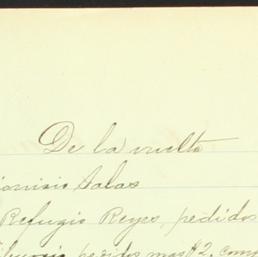 De la vuelta
ionisio Salas
Refugio Reyes, pedidos
pedidos mas $2. com